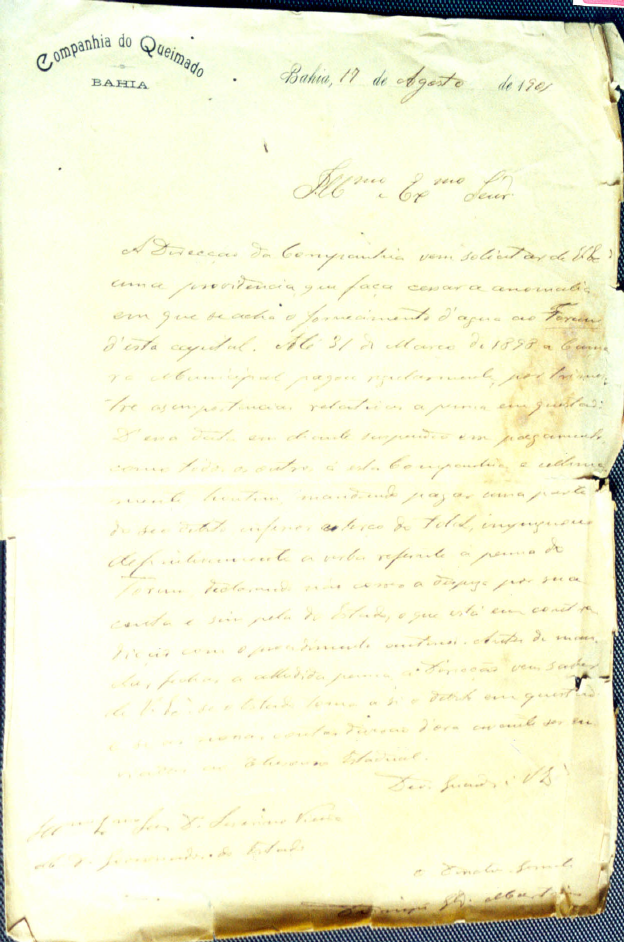 Companhia do Queimado
BAHIA
Bahia, 17 de Agosto de 1901
Illmo e Exmo Snr
A Direcção da Companhia vem solicitar de V. Ex
uma providencia que faça cessar a anomalia
em que se acha o fornecimento d'agua ao Forum
d'esta capital. Até 31 de Março de 1898 a Cama
ra Municipal pagou regularmente, por trimes
tre as importancias relativas a penna em questão.
D'essa data em diante suspendeu pagamento,
como todos os outros á esta Companhia e ultima
mente mandando pagar uma parte
do seu debito inferior ao terço do total, impugnou
definitivamente a verba referente a penna do
Forum, declarando não correr a despeza por sua
conta e sim pela do Estado, o que está em contra
dicção com o procedimento anterior. Antes de man
dar fechar a alludida penna, a Direcção vem saber
de V. Ex. se o Estado toma a si o debito em questão
e se as contas devem d'ora avante ser en
viadas ao Thesouro Estadual.
Deus Guarde a V. Ex
Illmo Exmo Snr. Dr. Severino Vieira
M. D. Governador do Estado
o Director Gerente